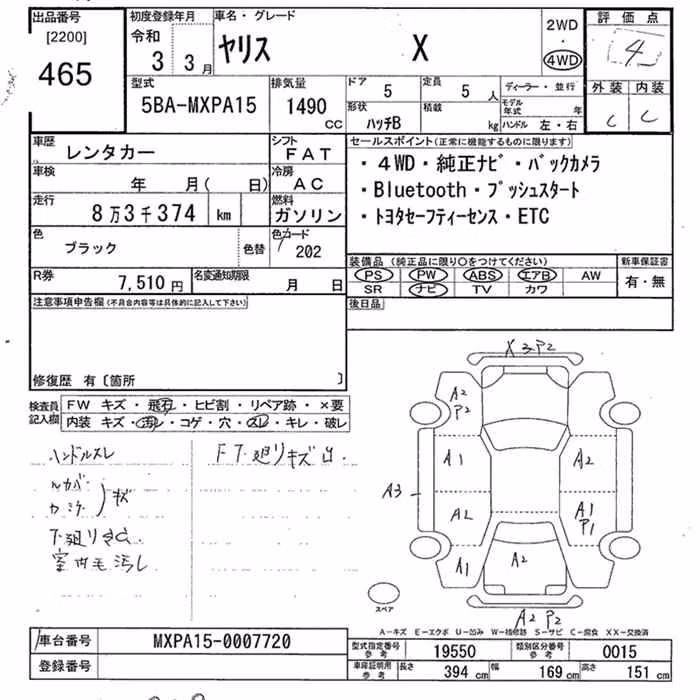 出品番号
[2200]
465
初度登録年月
令和
3 3月
車名・グレード
ヤリス X
2WD
・
4WD
評価点
4
外装 内装
C C
型式
5BA-MXPA15
排気量
1490
CC
ドア 5
定員 5人
形状 ハッチB
積載 kg
ディーラー・並行
モデル年式 年
ハンドル 左・右
車歴 レンタカー
シフト FAT
車検 年 月( 日)
冷房 AC
走行 8万3千374 km
燃料 ガソリン
色 ブラック 色替
色コード 202
R券 7,510円
名変通知期限 月 日
セールスポイント(正常に機能するものに限ります)
・4WD・純正ナビ・バックカメラ
・Bluetooth・プッシュスタート
・トヨタセーフティーセンス・ETC
装備品(純正品に限り○をつけてください)
新車保証書
PS PW ABS エアB AW
SR ナビ TV カワ
有・無
後日品
注意事項申告欄(不具合内容等は具体的に記入して下さい)
修復歴 有〔箇所 〕
検査員記入欄
FW キズ・飛石・ヒビ割・リペア跡・×要
内装 キズ・汚レ・コゲ・穴・スレ・キレ・破レ
ハンドルスレ
キズ
室内毛汚レ
X3P2
A2
P2
A1
A2
A3
A2
A1
P1
A1
A2
A2 P2
スペア
A-キズ E-エクボ U-凹み W-補修跡 S-サビ C-腐食 XX-交換済
車台番号 MXPA15-0007720
登録番号
型式指定番号参考 19550
類別区分番号参考 0015
車庫証明用参考 長さ 394cm 幅 169cm 高さ 151cm